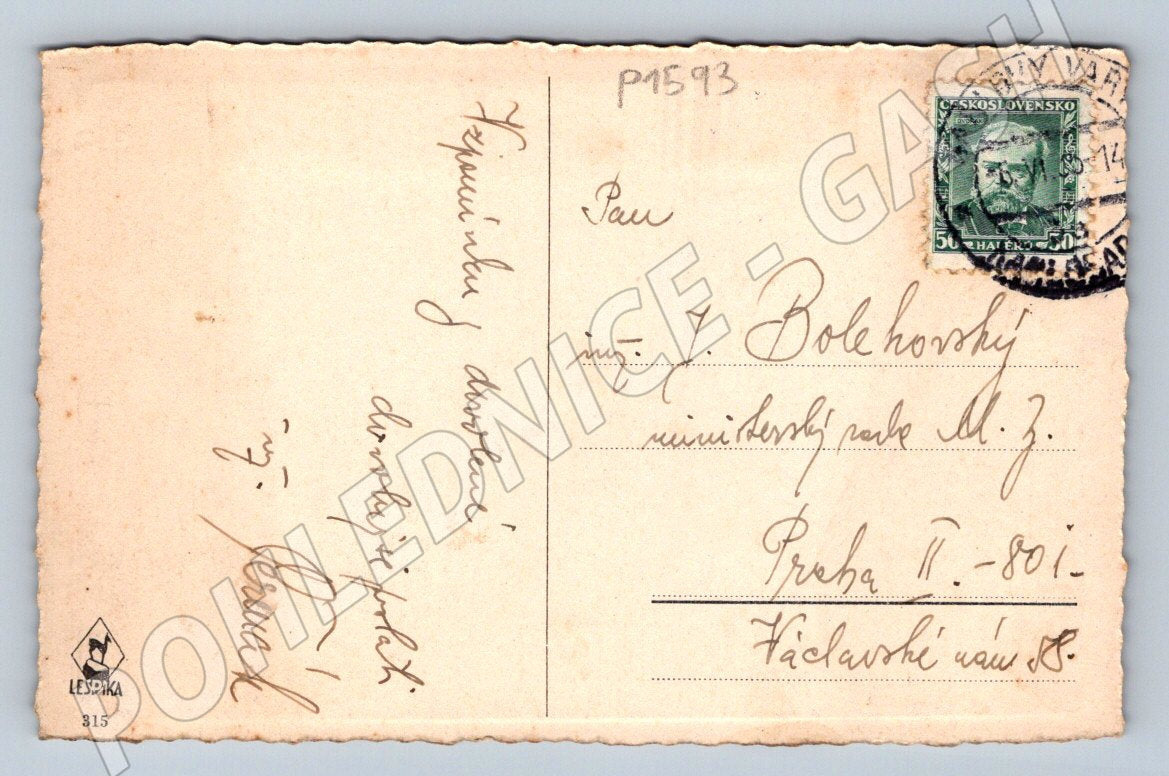 P1593
Vzpomínku
dovolené
dovoluje si poslati
ing.
Pan
ing. J. Bolehovský
ministerský rada M. Z.
Praha II. - 801-
Václavské nám
ČESKOSLOVENSKO
50 HALÉŘŮ 50
VARY
LESPIKA
315
POHLEDNICE - GASH